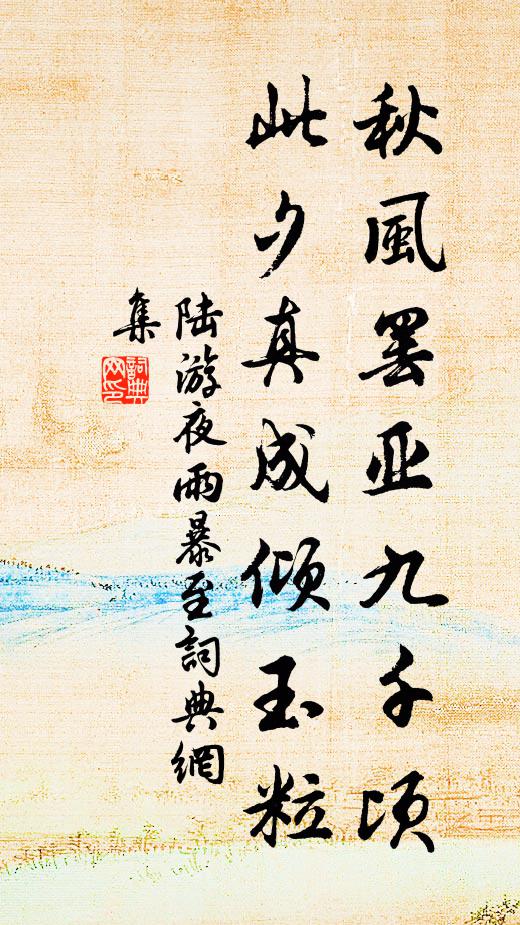 秋風罢亚九千顷
此夕真成倾玉粒
陆游夜雨暴至詞典網
集
詞典
网印